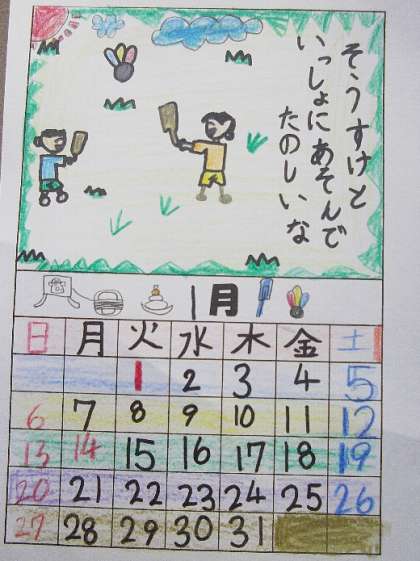 そうすけと
いっしょにあそんで
たのしいな
1月
日 月 火 水 木 金 土
1 2 3 4 5
6 7 8 9 10 11 12
13 14 15 16 17 18 19
20 21 22 23 24 25 26
27 28 29 30 31